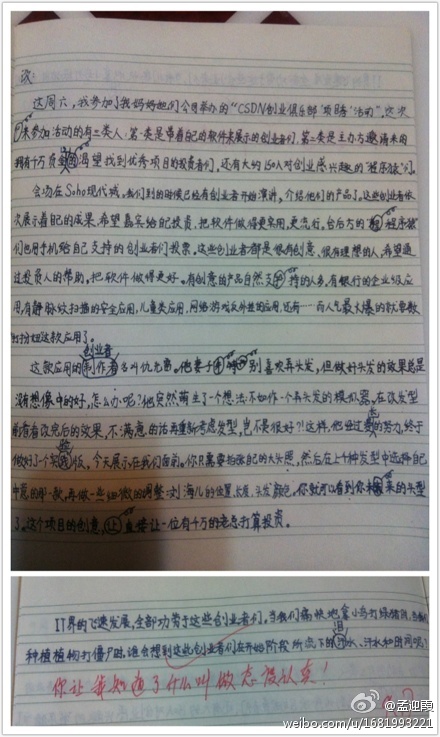 次：
这周六，我参加了我妈妈他们今日举办的“CSDN创业俱乐部 项目秀 活动”。这次
来参加活动的有三类人：第一类是带着自己的软件来展示的创业者们，第二类是主办方邀请来的
拥有千万资金 渴望找到优秀项目的投资者们，还有大约150人对创业感兴趣的“程序猿”们。
会场在Soho现代城。我们到的时候已经有创业者开始演讲，介绍他们的产品了。这些创业者依
次展示着自己的成果，希望嘉宾给自己投资，把软件做得更实用、更流行。台后方的“程序猿”
们也用手机给自己支持的创业者们投票。这些创业者都是很有创意、很有理想的人，希望通
过投资人的帮助，把软件做得更好。有创意的产品自然支持的人多，有银行的企业级应
用，有静脉纹扫描的安全应用，儿童类应用，网络游戏反外挂的应用，还有——而人气最火爆的
打扮妞这款应用了。
创业者
这款应用的制作者名叫仇光雷。他妻子 特别喜欢弄头发，但做好头发的效果总是
没有想像中的好，怎么办呢？他突然萌生了一个想法：不如作一个弄头发的模拟器，在改发型
前看看改完后的效果，不满意的话再重新考虑发型，岂不是很好？！这样，他经过 的努力，终于
做好了一个 版，今天展示在我们面前。你只需要拍张自己的大头照，然后在上千种发型中选择自己
中意的那一款，再做一些细微的调整：刘海儿的位置、长度、头发颜色，你就可以看到你未来的头型
了。这个项目的创意， 直接让一位有千万的老总打算投资。
IT界的飞速发展，全部功劳于这些创业者们。当我们痛快地拿小鸟打绿猪头，
种植植物打僵尸时，谁会想到这些创业者们在开始阶段所流下的泪水、汗水和时间呢？
你让笔知道了什么叫做态度认真！
@孟迎霞
weibo.com/u/1681993221